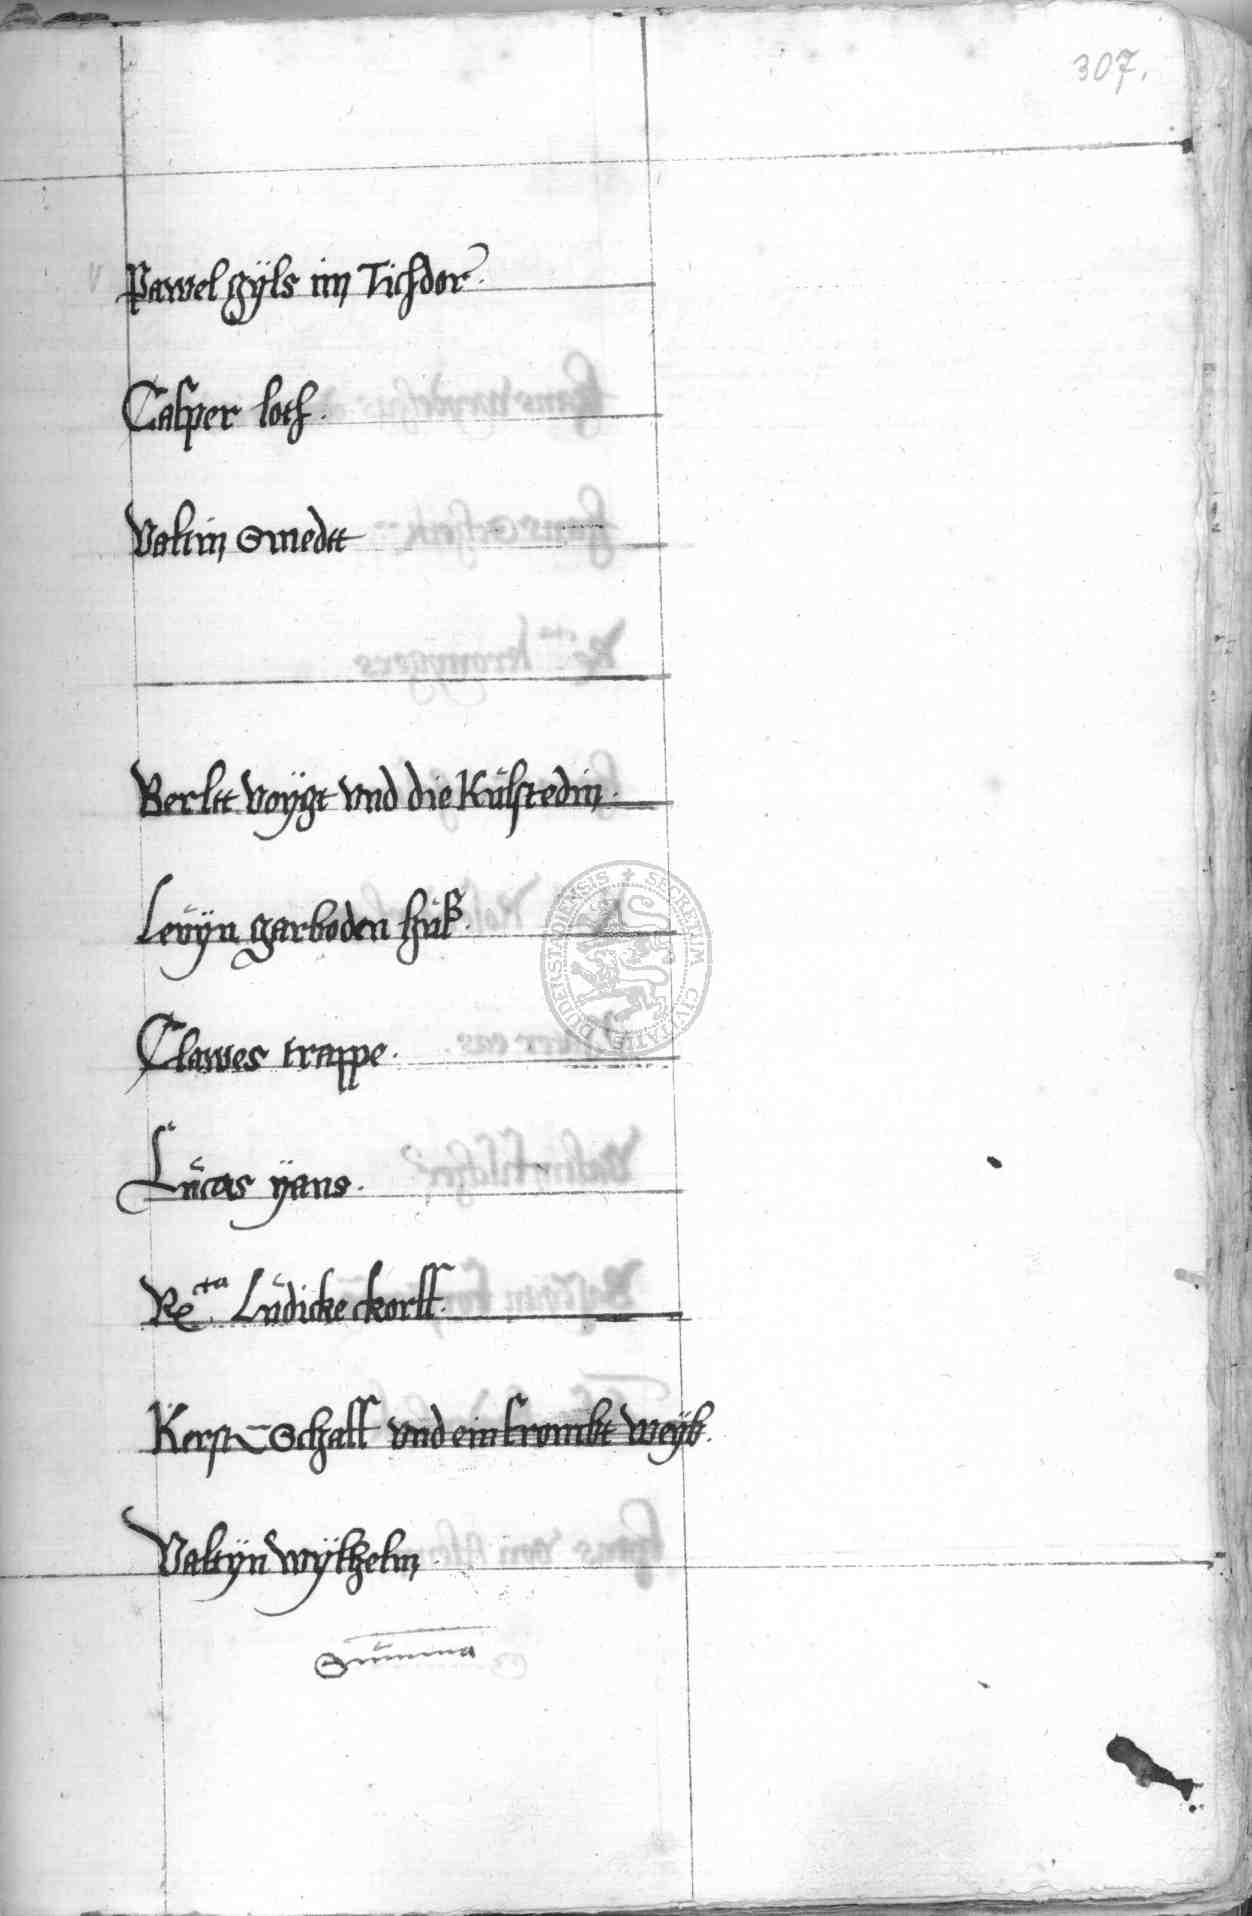 307.
Pawel gÿls im Tichdor.
Casper loth.
Valtin Smedtt
Berltt voÿgt vnd die Kulstedin.
Levÿn garboden huß.
Clawes trappe.
Lucas ÿans.
Re^ta Ludicke ckorff.
Kersten Schaff vnd ein krombt weÿb.
Valtÿn wÿlhelm.
Summa
SECRETUM CIVITATIS DUDERSTADIENSIS